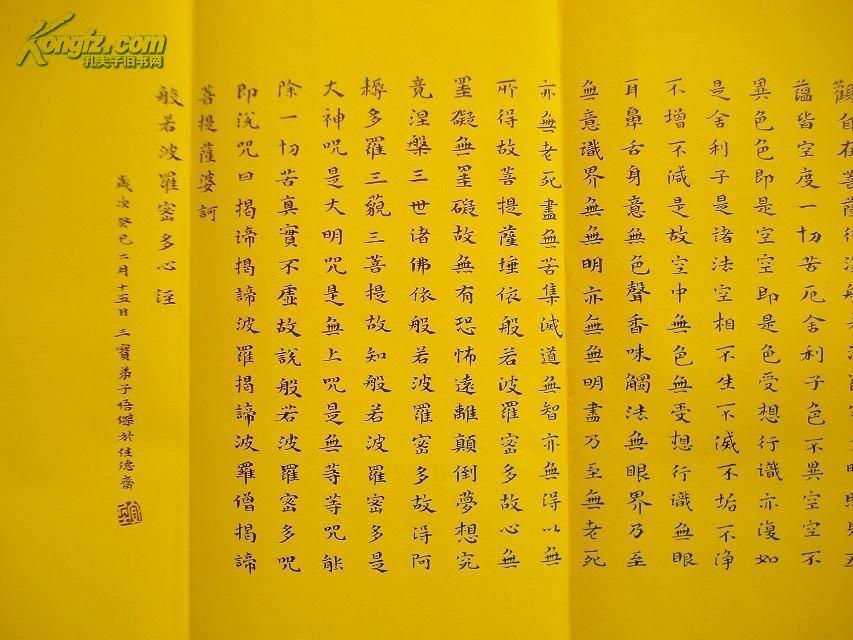 Kongfz.com
孔夫子旧书网
觀自在菩薩行
蘊皆空度一切苦厄舍利子色不異空空不
異色色即是空空即是色受想行識亦復如
是舍利子是諸法空相不生不滅不垢不淨
不增不減是故空中無色無受想行識無眼
耳鼻舌身意無色聲香味觸法無眼界乃至
無意識界無無明亦無無明盡乃至無老死
亦無老死盡無苦集滅道無智亦無得以無
所得故菩提薩埵依般若波羅密多故心無
罣礙無罣礙故無有恐怖遠離顛倒夢想究
竟涅槃三世諸佛依般若波羅密多故得阿
耨多羅三藐三菩提故知般若波羅密多是
大神咒是大明咒是無上咒是無等等咒能
除一切苦真實不虛故說般若波羅密多咒
即說咒曰揭諦揭諦波羅揭諦波羅僧揭諦
菩提薩婆訶
般若波羅密多心經
歲次癸巳二月十五日三寶弟子悟傑於住德齋